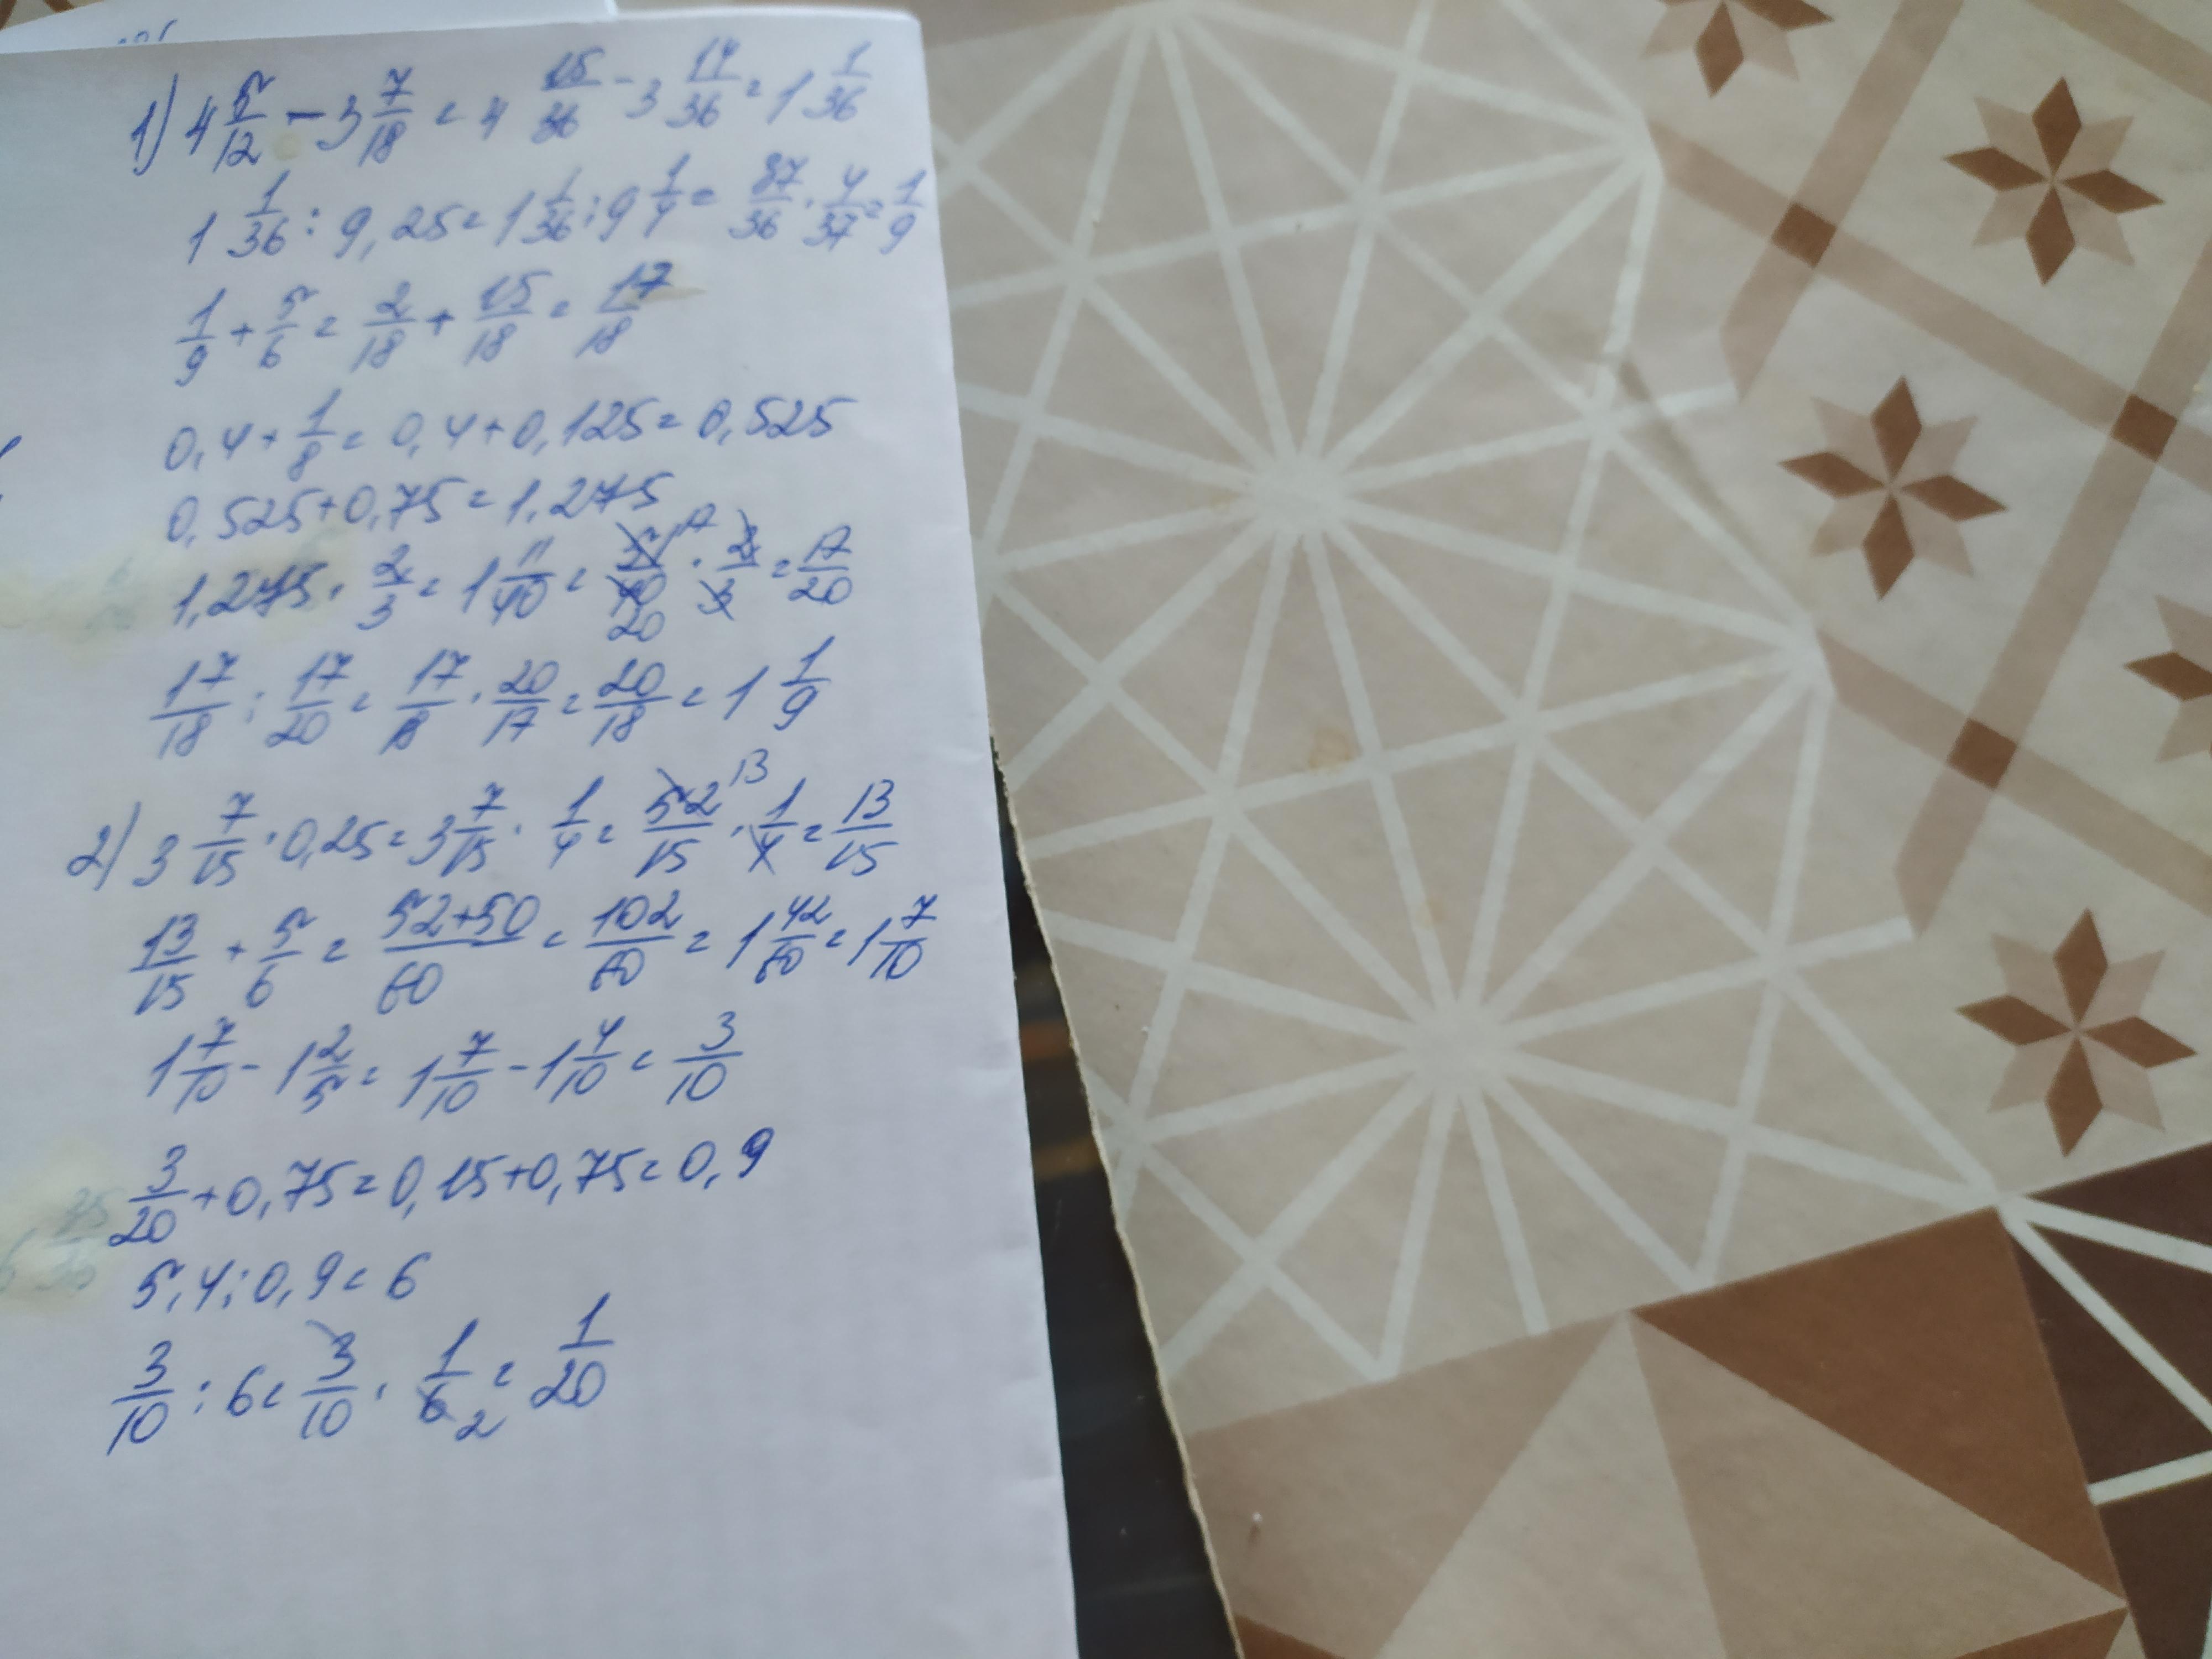 1) 4 5/12 - 3 7/18 = 4 15/36 - 3 14/36 = 1 1/36
1 1/36 : 9,25 = 1 1/36 : 9 1/4 = 37/36 · 4/37 = 1/9
1/9 + 5/6 = 2/18 + 15/18 = 17/18
0,4 + 1/8 = 0,4 + 0,125 = 0,525
0,525 + 0,75 = 1,275
1,275 · 2/3 = 1 11/40 = 51/40 17 20 · 2/3 = 17/20
17/18 : 17/20 = 17/18 · 20/17 = 20/18 = 1 1/9
2) 3 7/15 · 0,25 = 3 7/15 · 1/4 = 52/15 13 · 1/4 = 13/15
13/15 + 5/6 = 52+50/60 = 102/60 = 1 42/60 = 1 7/10
1 7/10 - 1 2/5 = 1 7/10 - 1 4/10 = 3/10
3/20 + 0,75 = 0,15 + 0,75 = 0,9
5,4 : 0,9 = 6
3/10 : 6 = 3/10 · 1/6 2 = 1/20